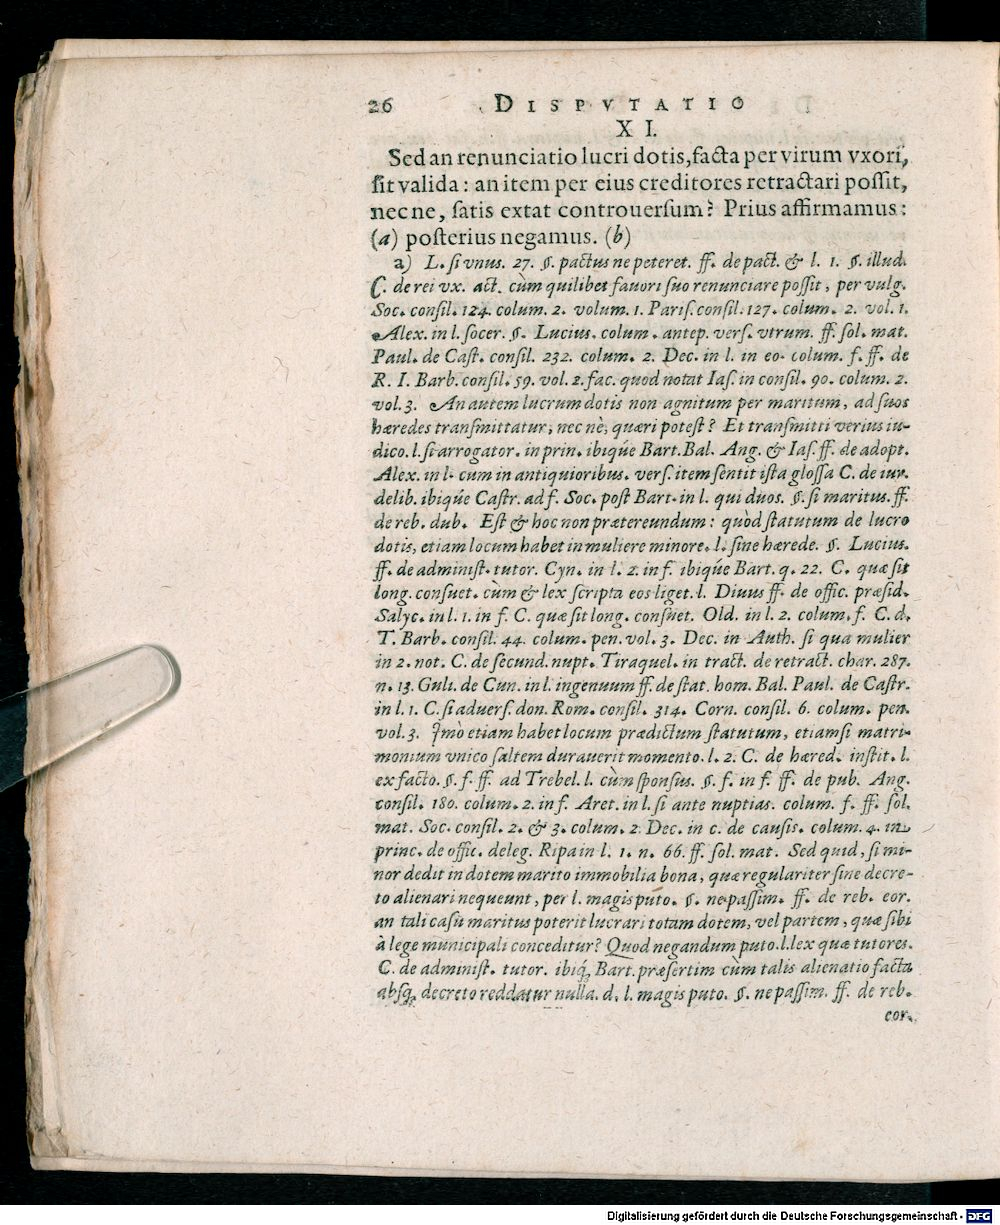 26 DISPVTATIO
XI.
Sed an renunciatio lucri dotis, facta per virum vxori,
ſit valida: an item per eius creditores retractari poſſit,
nec ne, ſatis extat controuerſum? Prius affirmamus:
(a) poſterius negamus. (b)
a) L. ſi vnus. 27. §. pactus ne peteret. ff. de pact. & l. 1. §. illud.
C. de rei vx. act. cùm quilibet fauori ſuo renunciare poſſit, per vulg.
Soc. conſil. 124. colum. 2. volum. 1. Pariſ. conſil. 127. colum. 2. vol. 1.
Alex. in l. ſocer. §. Lucius. colum. antep. verſ. vtrum. ff. ſol. mat.
Paul. de Caſt. conſil. 232. colum. 2. Dec. in l. in eo. colum. f. ff. de
R. I. Barb. conſil. 59. vol. 2. fac. quod notat Iaſ. in conſil. 90. colum. 2.
vol. 3. An autem lucrum dotis non agnitum per maritum, ad ſuos
hæredes tranſmittatur, nec nè, quæri poteſt? Et tranſmitti verius iu-
dico. l. ſi arrogator. in prin. ibiq́ue Bart. Bal. Ang. & Iaſ. ff. de adopt.
Alex. in l. cum in antiquioribus. verſ. item ſentit iſta gloſſa C. de iur.
delib. ibiq́ue Caſtr. ad f. Soc. poſt Bart. in l. qui duos. §. ſi maritus. ff.
de reb. dub. Eſt & hoc non prætereundum: quòd ſtatutum de lucro
dotis, etiam locum habet in muliere minore. l. ſine hærede. §. Lucius.
ff. de adminiſt. tutor. Cyn. in l. 2. in f. ibiq́ue Bart. q. 22. C. quæ ſit
long. conſuet. cùm & lex ſcripta eos liget. l. Diuus ff. de offic. præſid.
Salyc. in l. 1. in f. C. quæ ſit long. conſuet. Old. in l. 2. colum. f. C. d.
T. Barb. conſil. 44. colum. pen. vol. 3. Dec. in Auth. ſi qua mulier
in 2. not. C. de ſecund. nupt. Tiraquel. in tract. de retract. char. 287.
n. 13. Guli. de Cun. in l. ingenuum ff. de ſtat. hom. Bal. Paul. de Caſtr.
in l. 1. C. ſi aduerſ. don. Rom. conſil. 314. Corn. conſil. 6. colum. pen.
vol. 3. Jmò etiam habet locum prædictum ſtatutum, etiamſi matri-
monium vnico ſaltem durauerit momento. l. 2. C. de hæred. inſtit. l.
ex facto. §. f. ff. ad Trebel. l. cùm ſponſus. §. f. in f. ff. de pub. Ang.
conſil. 180. colum. 2. in f. Aret. in l. ſi ante nuptias. colum. f. ff. ſol.
mat. Soc. conſil. 2. & 3. colum. 2. Dec. in c. de cauſis. colum. 4. in
princ. de offic. deleg. Ripa in l. 1. n. 66. ff. ſol. mat. Sed quid, ſi mi-
nor dedit in dotem marito immobilia bona, quæ regulariter ſine decre-
to alienari nequeunt, per l. magis puto. §. ne paſſim. ff. de reb. eor.
an tali caſu maritus poterit lucrari totam dotem, vel partem, quæ ſibi
à lege municipali conceditur? Quod negandum puto. l. lex quæ tutores.
C. de adminiſt. tutor. ibiq́; Bart. præſertim cùm talis alienatio facta
abſq; decreto reddatur nulla. d. l. magis puto. §. ne paſſim. ff. de reb.
eor.
Digitalisierung gefördert durch die Deutsche Forschungsgemeinschaft - DFG